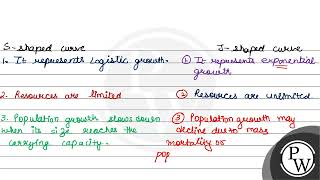 S-shaped curve
J-shaped curve
1. It represents logistic growth.
① It represents exponential
growth
2. Resources are limited
② Resources are unlimited
3. Population growth slows down
when its size reaches the
carrying capacity.
③ Population growth may
decline due to mass
mortality or
pop
PW